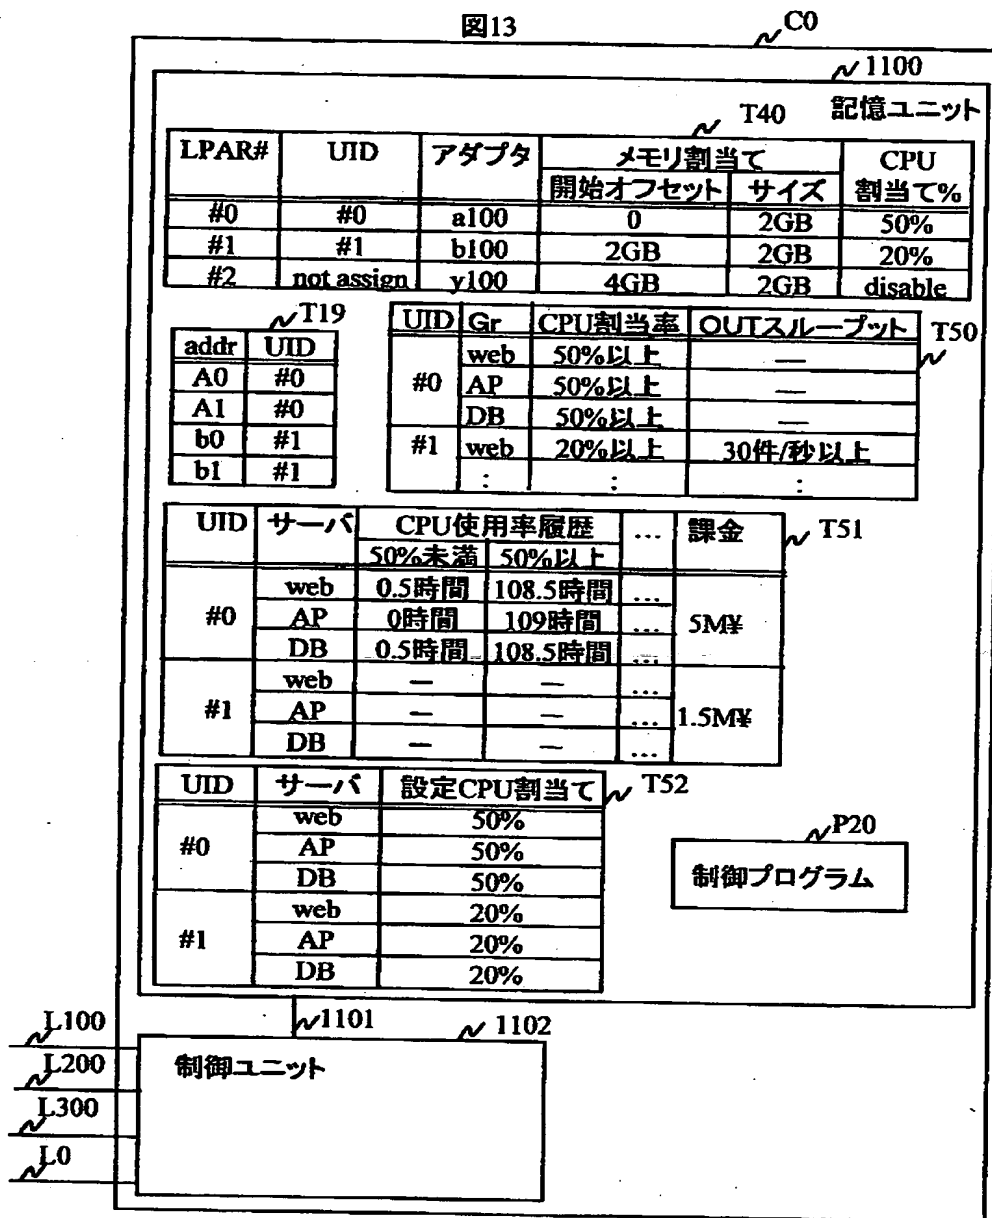 図13
C0
1100
記憶ユニット
T40
LPAR# UID アダプタ メモリ割当て CPU
開始オフセット サイズ 割当て%
#0 #0 a100 0 2GB 50%
#1 #1 b100 2GB 2GB 20%
#2 not assign y100 4GB 2GB disable
T19
addr UID
A0 #0
A1 #0
b0 #1
b1 #1
UID Gr CPU割当率 OUTスループット T50
web 50%以上 —
#0 AP 50%以上 —
DB 50%以上 —
#1 web 20%以上 30件/秒以上
: : :
UID サーバ CPU使用率履歴 … 課金 T51
50%未満 50%以上
web 0.5時間 108.5時間 …
#0 AP 0時間 109時間 … 5M¥
DB 0.5時間 108.5時間 …
web — — …
#1 AP — — … 1.5M¥
DB — — …
UID サーバ 設定CPU割当て T52
web 50%
#0 AP 50%
DB 50%
web 20%
#1 AP 20%
DB 20%
P20
制御プログラム
1101
1102
制御ユニット
L100
L200
L300
L0